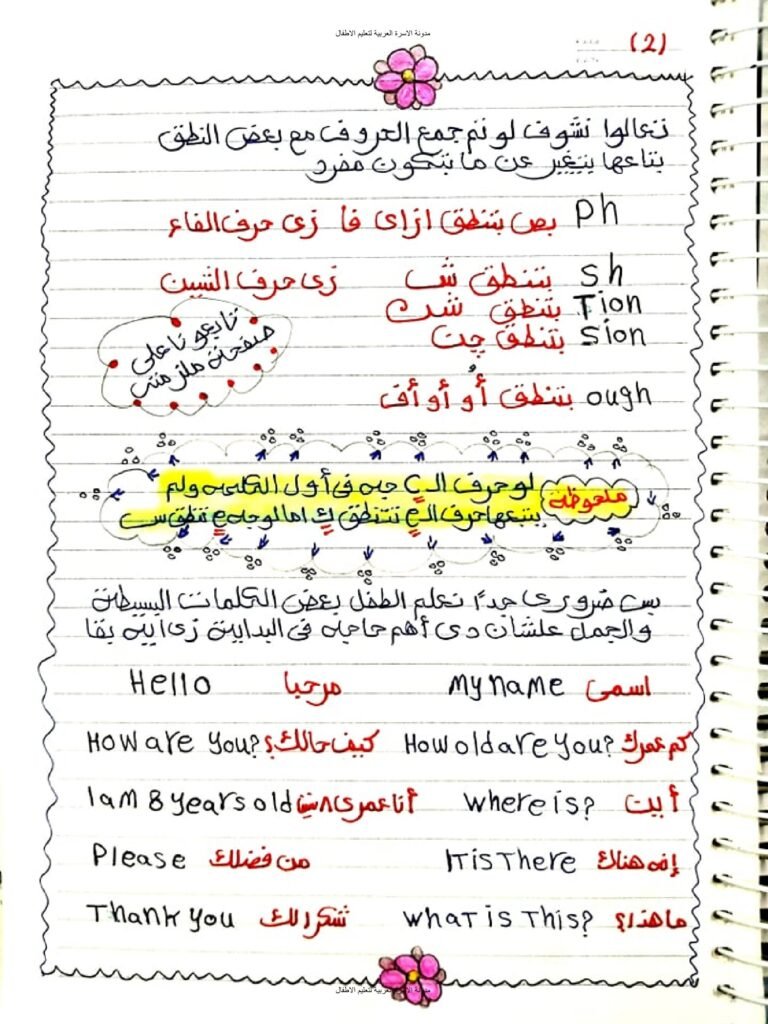 مدونة الاسرة العربية لتعليم الاطفال
(2)
تعالوا نشوف لو تم جمع الحروف مع بعض النطق
بتاعها يتغير عن ما بتكون مفرد
Ph بص بتنطق ازاى فا زى حرف الفاء
sh بتنطق ش زى حرف الشين
Tion بتنطق شن
sion بتنطق چن
ough بتنطق أو أو أف
تابعونا على
صفحة ملزمتى
ملحوظة
لو حرف الـ C جيه فى أول الكلمه ولم
يتبعها حرف الـ e تتنطق ك اما لو جه e تنطق س
بس ضرورى جداً نعلم الطفل بعض الكلمات البسيطة
والجمل علشان دى أهم حاجه فى البداية زى ايه بقا
Hello مرحبا My name اسمى
How are you? كيف حالك؟ How old are you? كم عمرك
I am 8 years old أنا عمرى ٨ where is? أين
Please من فضلك It is There إنه هناك
Thank you شكرا لك what is This? ما هذا؟
مدونة الاسرة العربية لتعليم الاطفال